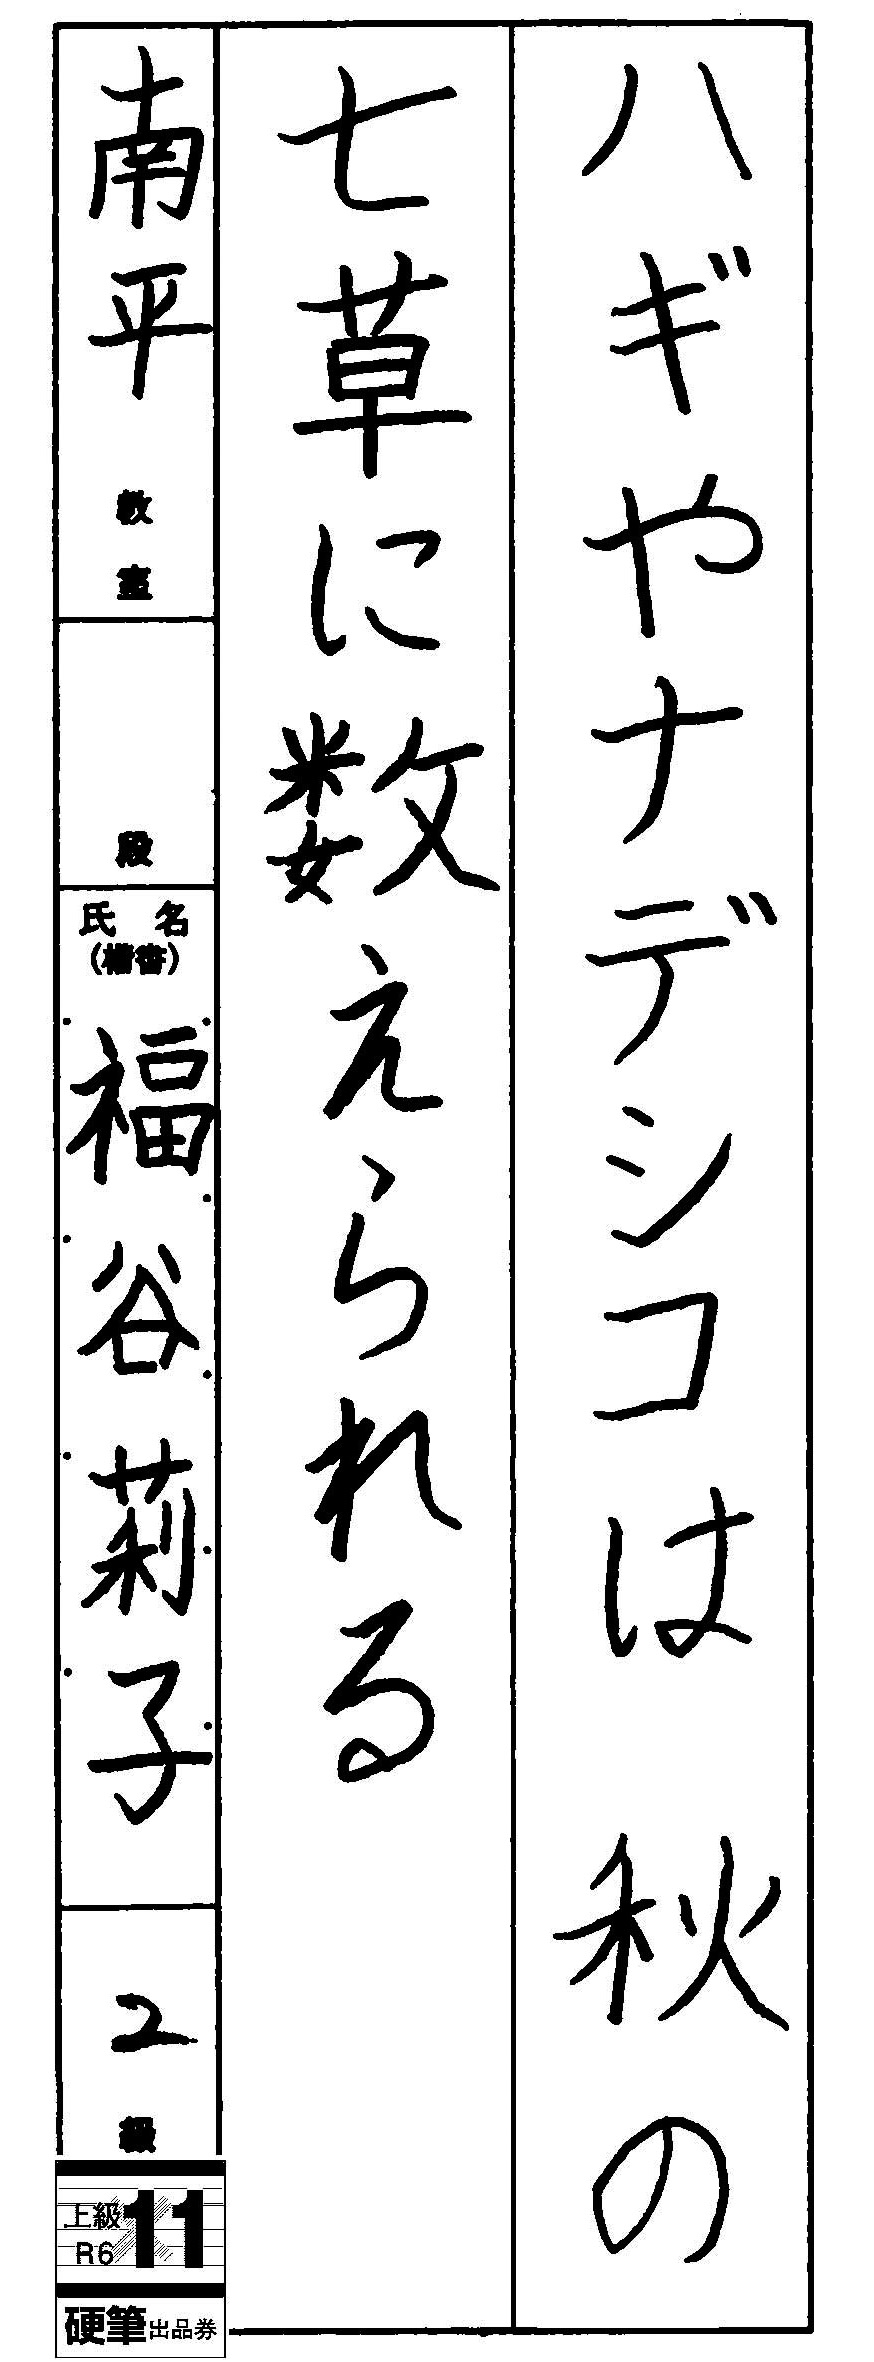 ハギやナデシコは 秋の
七草に数えられる
南平教室
段
氏名
(楷書)
福谷莉子
2級
上級
R6
11
硬筆出品券